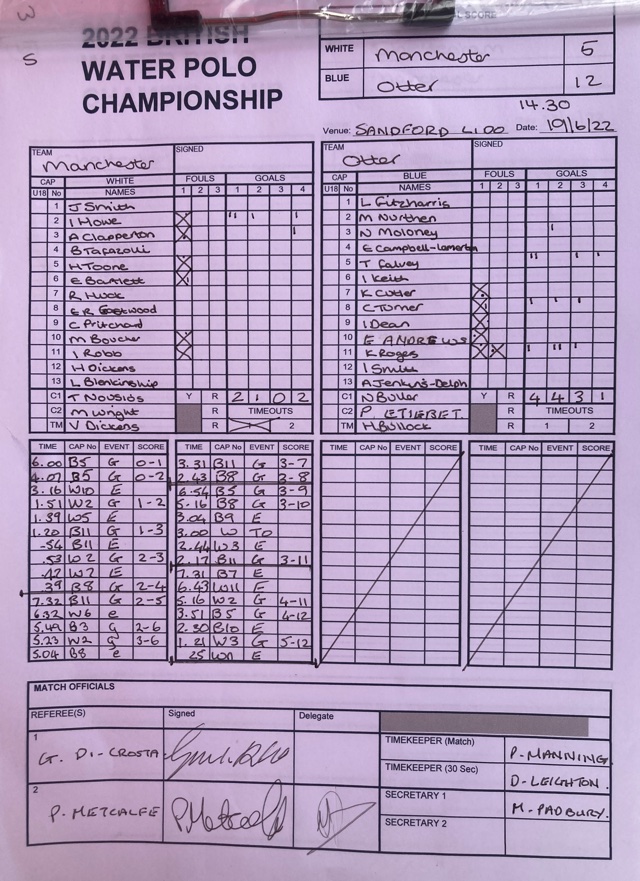 3
5
2022 BRITISH
WATER POLO
CHAMPIONSHIP
SCORE
WHITE Manchester 5
BLUE Otter 12
14.30
Venue: SANDFORD LIDO Date: 19/6/22
TEAM Manchester SIGNED
CAP WHITE FOULS GOALS
U18 No NAMES 1 2 3 1 2 3 4
1 J Smith
2 I Howe
3 A Clapperton
4 B Tafazolli
5 H Toone
6 E Bartlett
7 R Huck
8 E R Eastwood
9 C Pritchard
10 M Boucher
11 I Robb
12 H Dickens
13 L Blenkinship
C1 T Nousios Y R 2 1 0 2
C2 M Wright R TIMEOUTS
TM V Dickens R 2
TEAM Otter SIGNED
CAP BLUE FOULS GOALS
U18 No NAMES 1 2 3 1 2 3 4
1 L Fitzharris
2 M Northen
3 N Moloney
4 E Campbell-Lamerton
5 T Falvey
6 I Keith
7 K Cutler
8 C Turner
9 I Dean
10 E ANDREWS
11 K Roges
12 I Smith
13 A Jenkins-Delph
C1 N Buller Y R 4 4 3 1
C2 P. ETIEBET. R TIMEOUTS
TM H Bullock R 1 2
TIME CAP No EVENT SCORE
6.00 B5 G 0-1
4.07 B5 G 0-2
3.16 W10 E
1.51 W2 G 1-2
1.39 W5 E
1.20 B11 G 1-3
.54 B11 E
.53 W2 G 2-3
.12 W2 E
.39 B8 G 2-4
7.32 B11 G 2-5
6.32 W6 e
5.49 B3 g 2-6
5.23 W2 g 3-6
5.04 B8 e
TIME CAP No EVENT SCORE
3.31 B11 G 3-7
2.43 B8 G 3-8
6.54 B5 G 3-9
5.16 B8 G 3-10
3.04 B9 E
3.00 W TO
2.44 W3 E
2.17 B11 G 3-11
7.31 B7 E
6.43 W11 E
5.16 W2 G 4-11
3.51 B5 G 4-12
2.30 B10 E
1.21 W3 G 5-12
25 W11 E
TIME CAP No EVENT SCORE
TIME CAP No EVENT SCORE
MATCH OFFICIALS
REFEREE(S) Signed Delegate
1 G. DI-CROSTA
2 P. METCALFE
TIMEKEEPER (Match) P. MANNING
TIMEKEEPER (30 Sec) D-LEIGHTON
SECRETARY 1 M. PADBURY.
SECRETARY 2